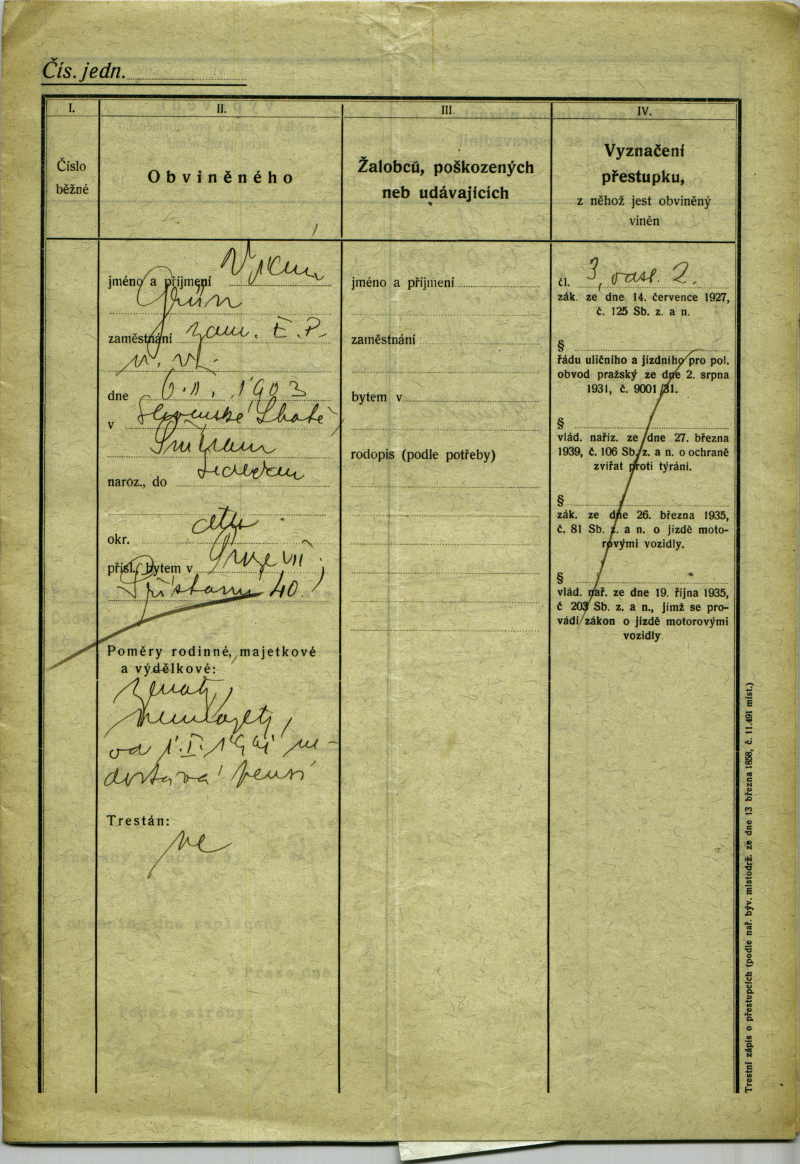 Čís. jedn.
I.
II.
III.
IV.
Číslo
běžné
Obviněného
Žalobců, poškozených
neb udávajících
Vyznačení
přestupku,
z něhož jest obviněný
vinen
jméno a příjmení
Grün
zaměstnání zam. E. P.
v. v.
dne 6.11. 1903
v Slovenské Lhotě,
naroz., do
okr. dtto
přísl., bytem v Praze VII,
Přístavní 40
Poměry rodinné, majetkové
a výdělkové:
ženatý,
nemajetý,
od 1.I. 1941 ne-
dostává pensi
Trestán:
ne
jméno a příjmení
zaměstnání
bytem v
rodopis (podle potřeby)
čl. 3, odst. 2.
zák. ze dne 14. července 1927,
č. 125 Sb. z. a n.
§
řádu uličního a jízdního pro pol.
obvod pražský ze dne 2. srpna
1931, č. 9001/31.
§
vlád. naříz. ze dne 27. března
1939, č. 106 Sb. z. a n. o ochraně
zvířat proti týrání.
§
zák. ze dne 26. března 1935,
č. 81 Sb. z. a n. o jízdě moto-
rovými vozidly.
§
vlád. nař. ze dne 19. října 1935,
č 203 Sb. z. a n., jímž se pro-
vádí zákon o jízdě motorovými
vozidly
Trestní zápis o přestupcích (podle nař. býv. místodrž. ze dne 13 března 1858, č. 11.491 míst.)